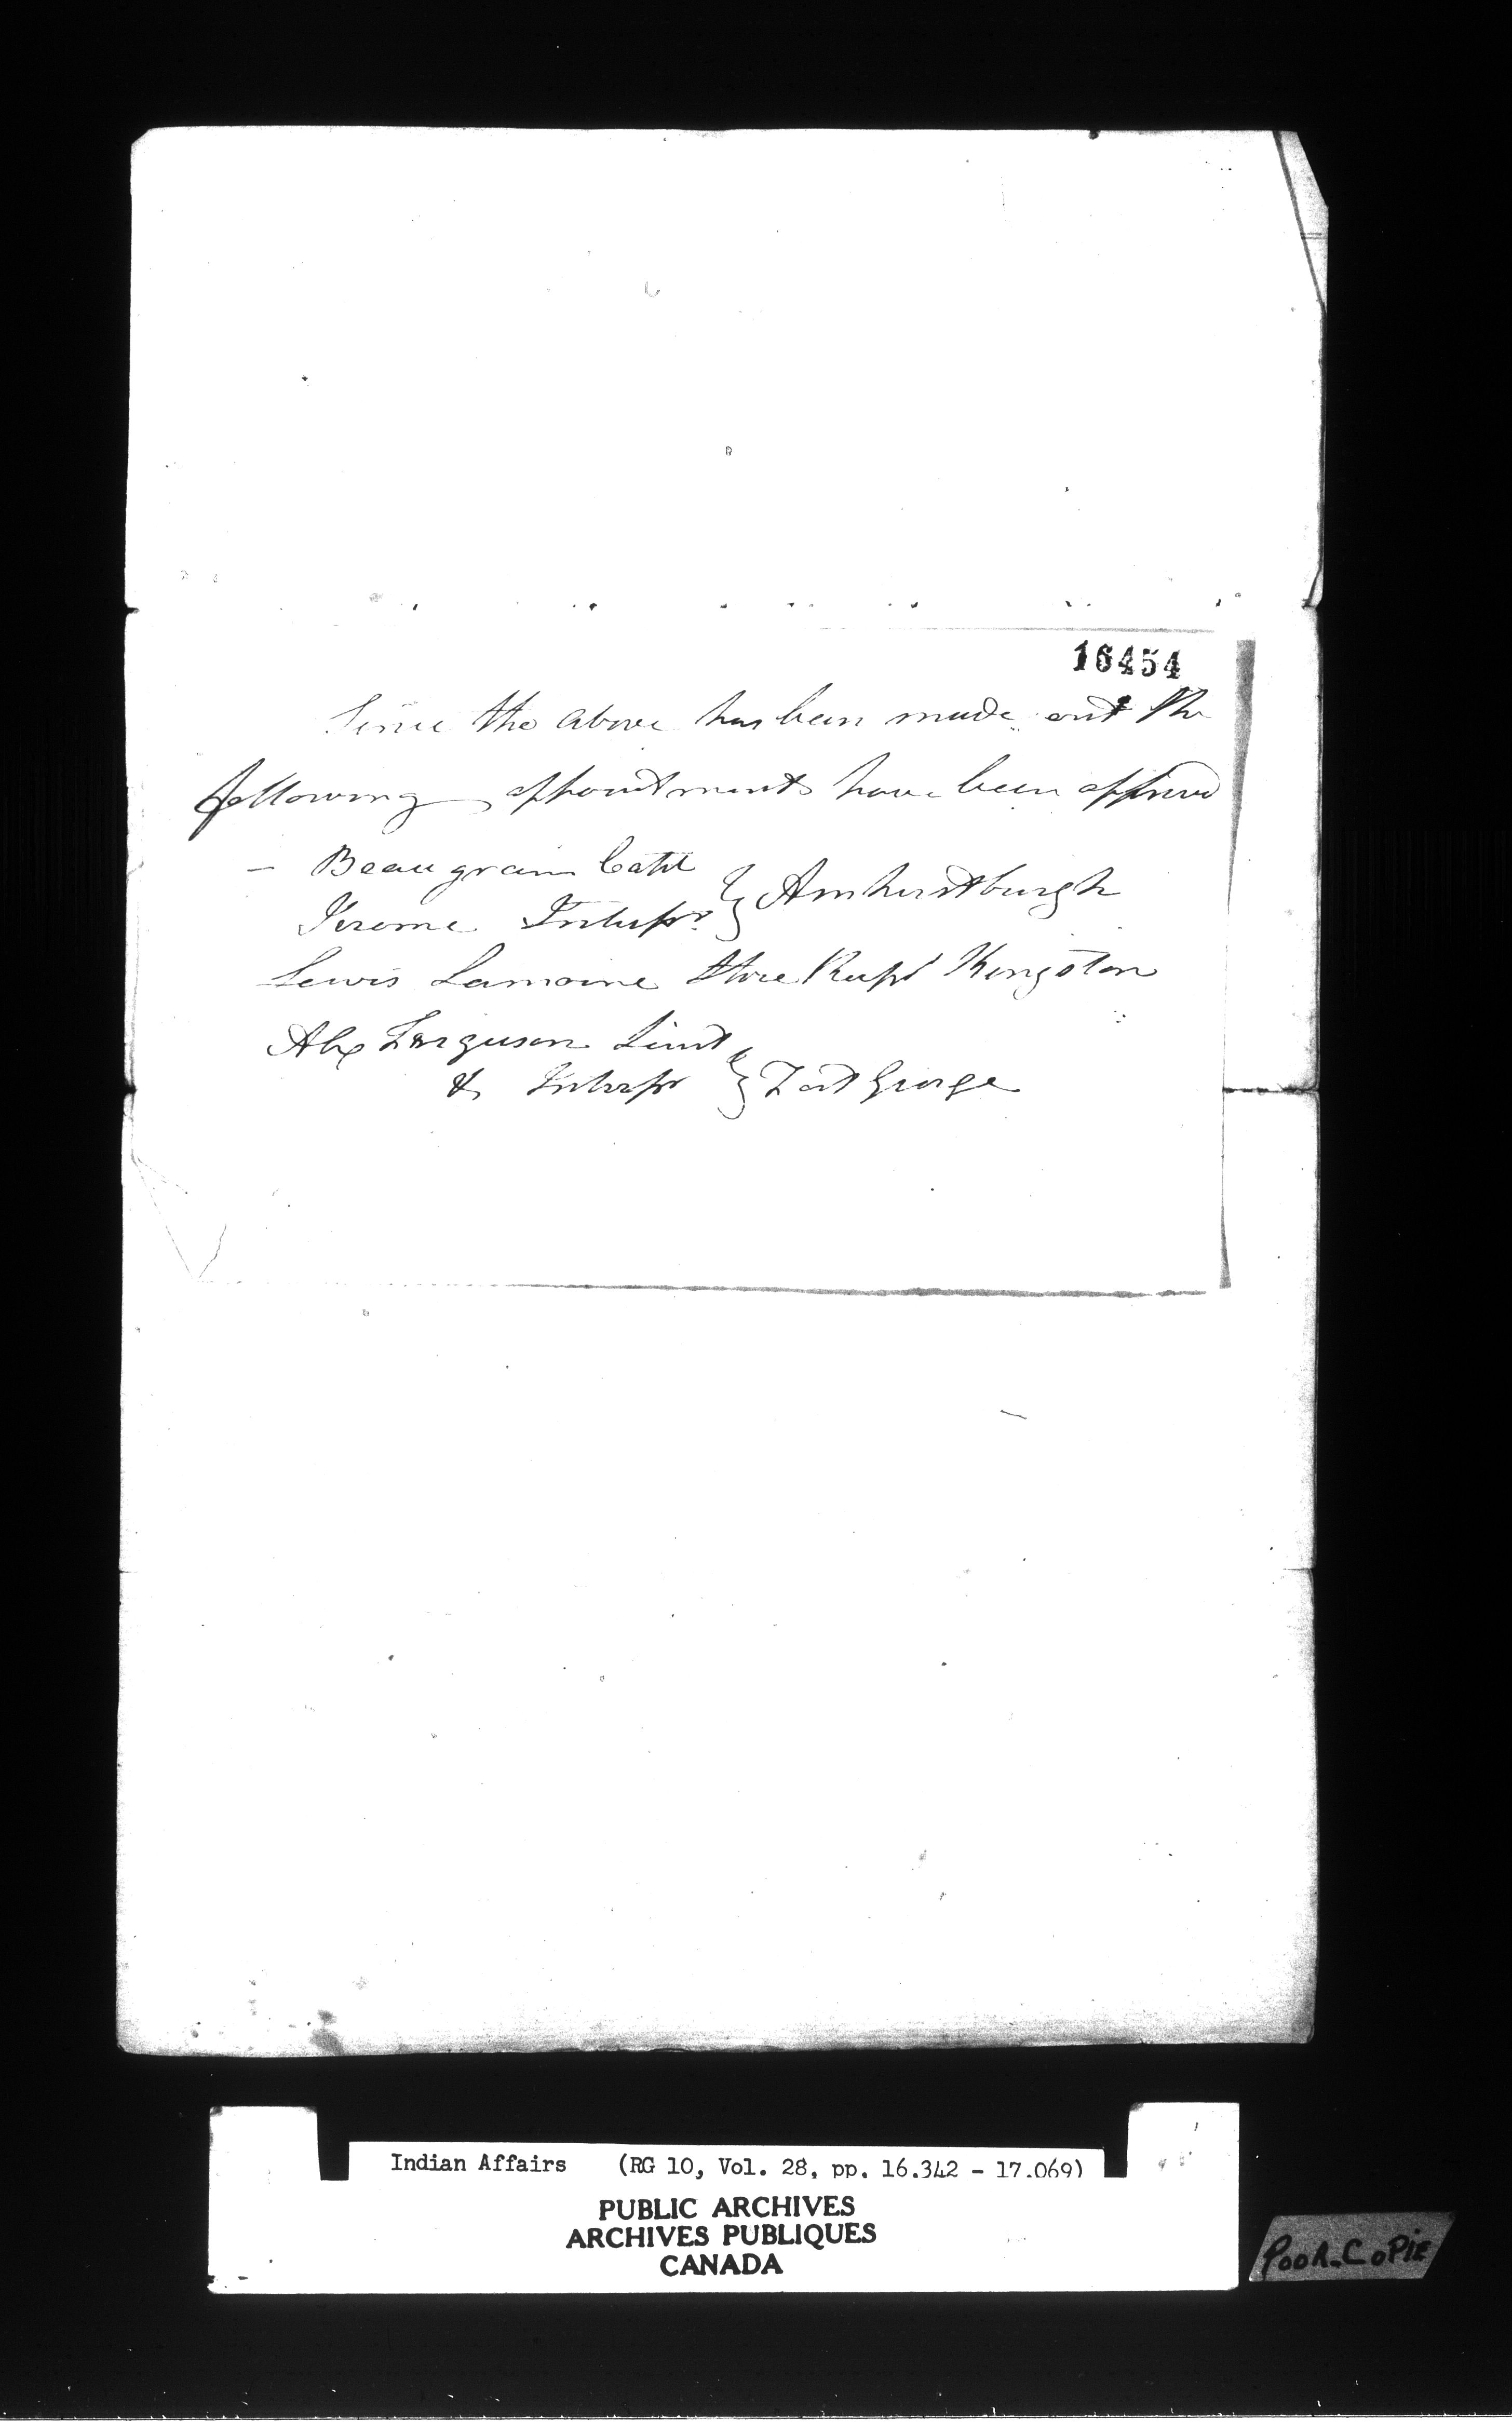 16454
Since the above has been made out the
following appointments have been approved
- Beaugrain Capt
Jerome Interpr } Amherstburgh
Lewis Lamoine Store Keepr Kingston
Alex Ferguson Lieut
& Interpr } Fort George
Indian Affairs (RG 10, Vol. 28, pp. 16.342 - 17.069)
PUBLIC ARCHIVES
ARCHIVES PUBLIQUES
CANADA
POOR COPIE